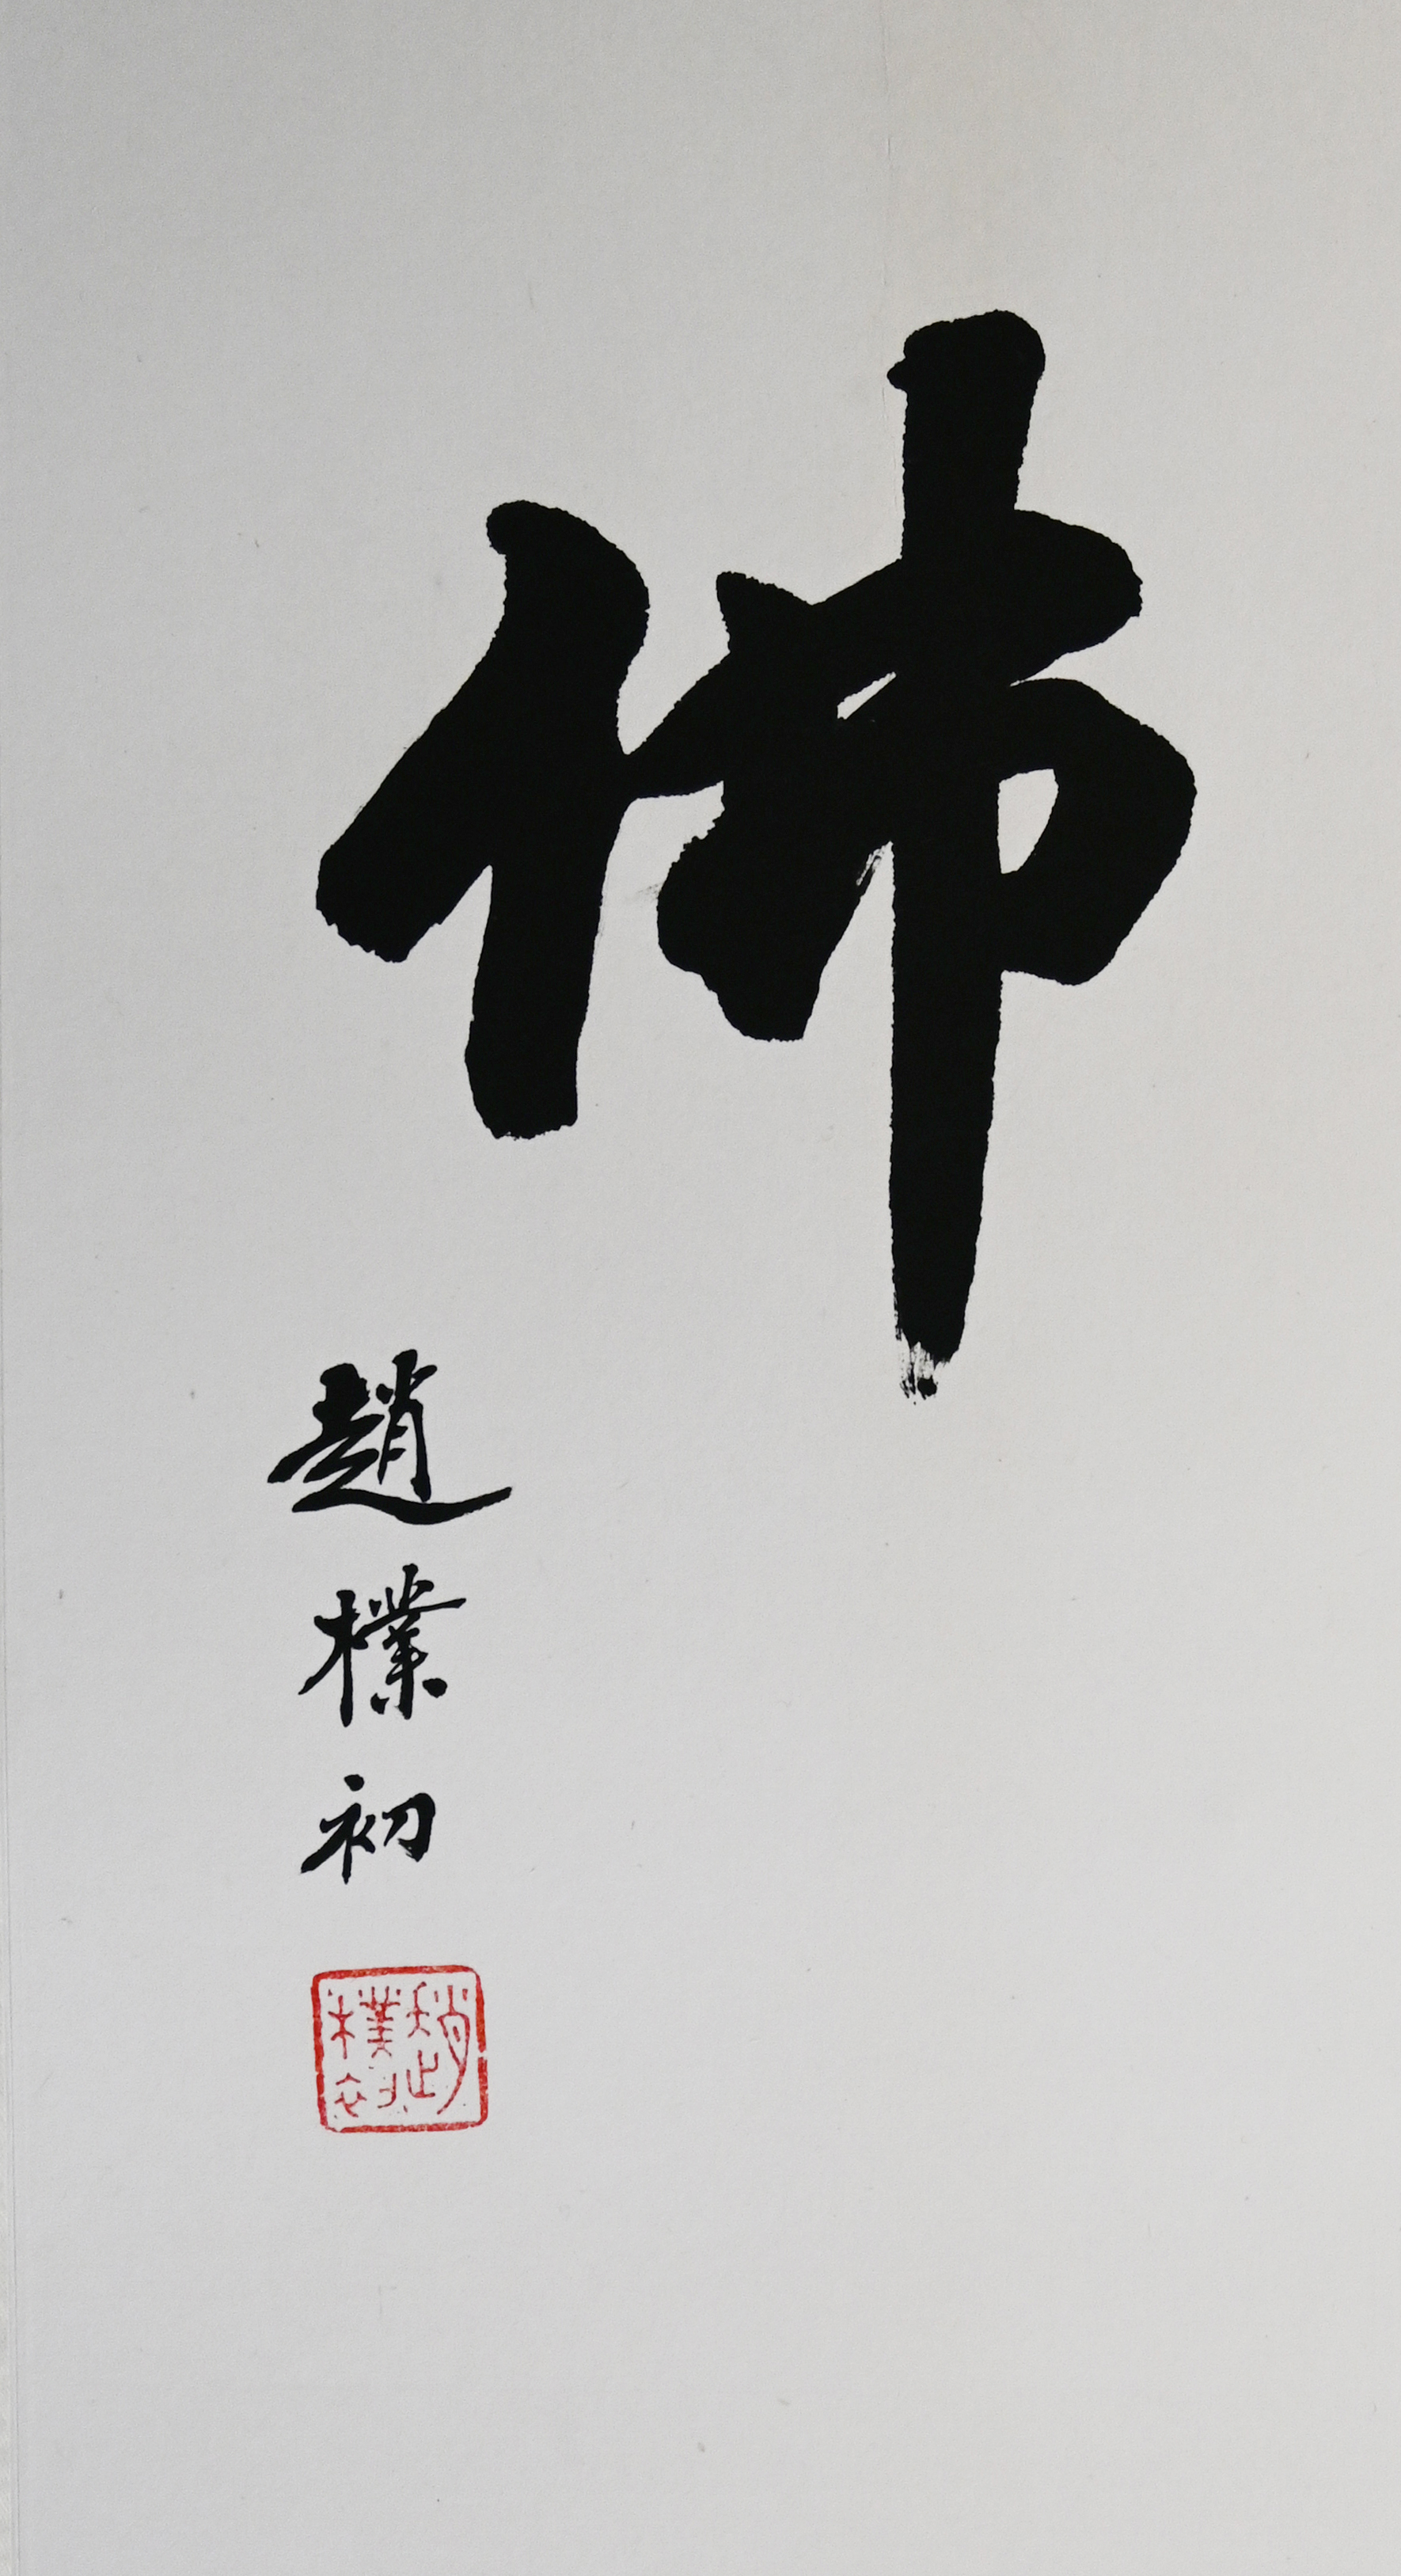 佛
趙樸初
趙樸初